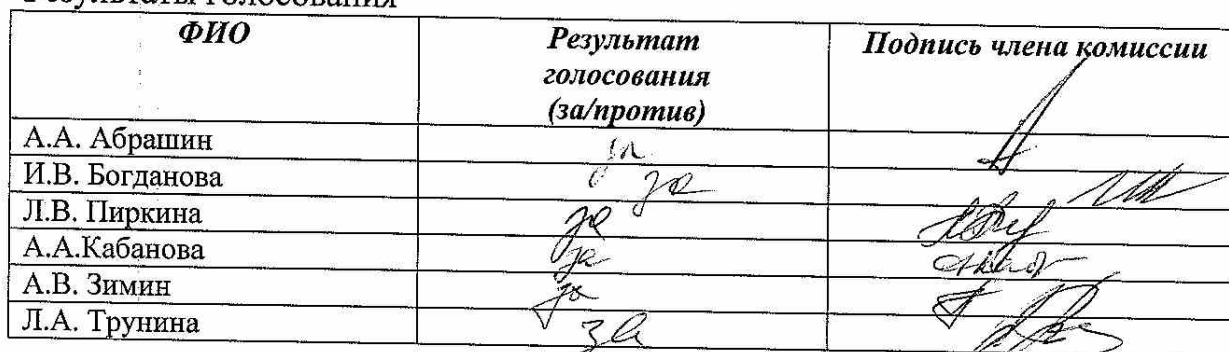 Результаты голосования
ФИО Результат голосования (за/против) Подпись члена комиссии
А.А. Абрашин за
И.В. Богданова за
Л.В. Пиркина за
А.А.Кабанова за
А.В. Зимин за
Л.А. Трунина за